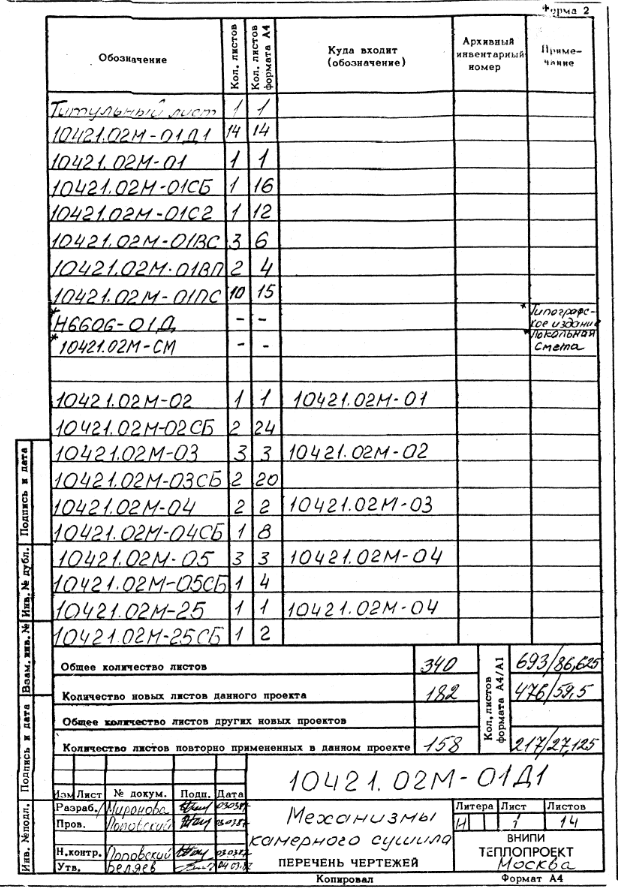 Форма 2
Обозначение | Кол. листов | Кол. листов формата А4 | Куда входит (обозначение) | Архивный инвентарный номер | Примечание
Титульный лист 1 1
10421.02М-01Д1 14 14
10421.02М-01 1 1
10421.02М-01СБ 1 16
10421.02М-01С2 1 12
10421.02М-01ВС 3 6
10421.02М-01ВП 2 4
10421.02М-01ПС 10 15
*Н6606-01Д - - Типографское издание
*10421.02М-СМ - - Локальная смета
10421.02М-02 1 1 10421.02М-01
10421.02М-02СБ 2 24
10421.02М-03 3 3 10421.02М-02
10421.02М-03СБ 2 20
10421.02М-04 2 2 10421.02М-03
10421.02М-04СБ 1 8
10421.02М-05 3 3 10421.02М-04
10421.02М-05СБ 1 4
10421.02М-25 1 1 10421.02М-04
10421.02М-25СБ 1 2
Общее количество листов 340 693/86,625
Количество новых листов данного проекта 182 476/59,5
Общее количество листов других новых проектов
Количество листов повторно примененных в данном проекте 158 217/27,125
Кол. листов формата А4/А1
Подпись и дата
Инв. № дубл.
Взам. инв. №
Подпись и дата
Инв. №подл.
10421.02М-01Д1
Изм Лист № докум. Подп. Дата
Разраб. Миронова
Пров. Поповский
Н.контр. Поповский
Утв. Беляев
Механизмы
камерного сушила
ПЕРЕЧЕНЬ ЧЕРТЕЖЕЙ
Литера Лист Листов
И 1 14
ВНИПИ
ТЕПЛОПРОЕКТ
Москва
Копировал Формат А4